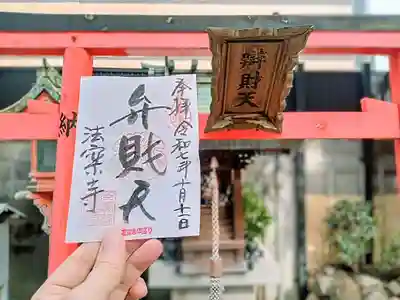 奉拝 令和七年十月十二日
弁財天
法案寺
辨財天